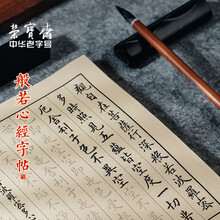 榮寶齋
中华老字号
般若心經字帖
觀自在菩薩行深般若波羅
多時照見五蘊皆空度一切
厄舍利子色不異空